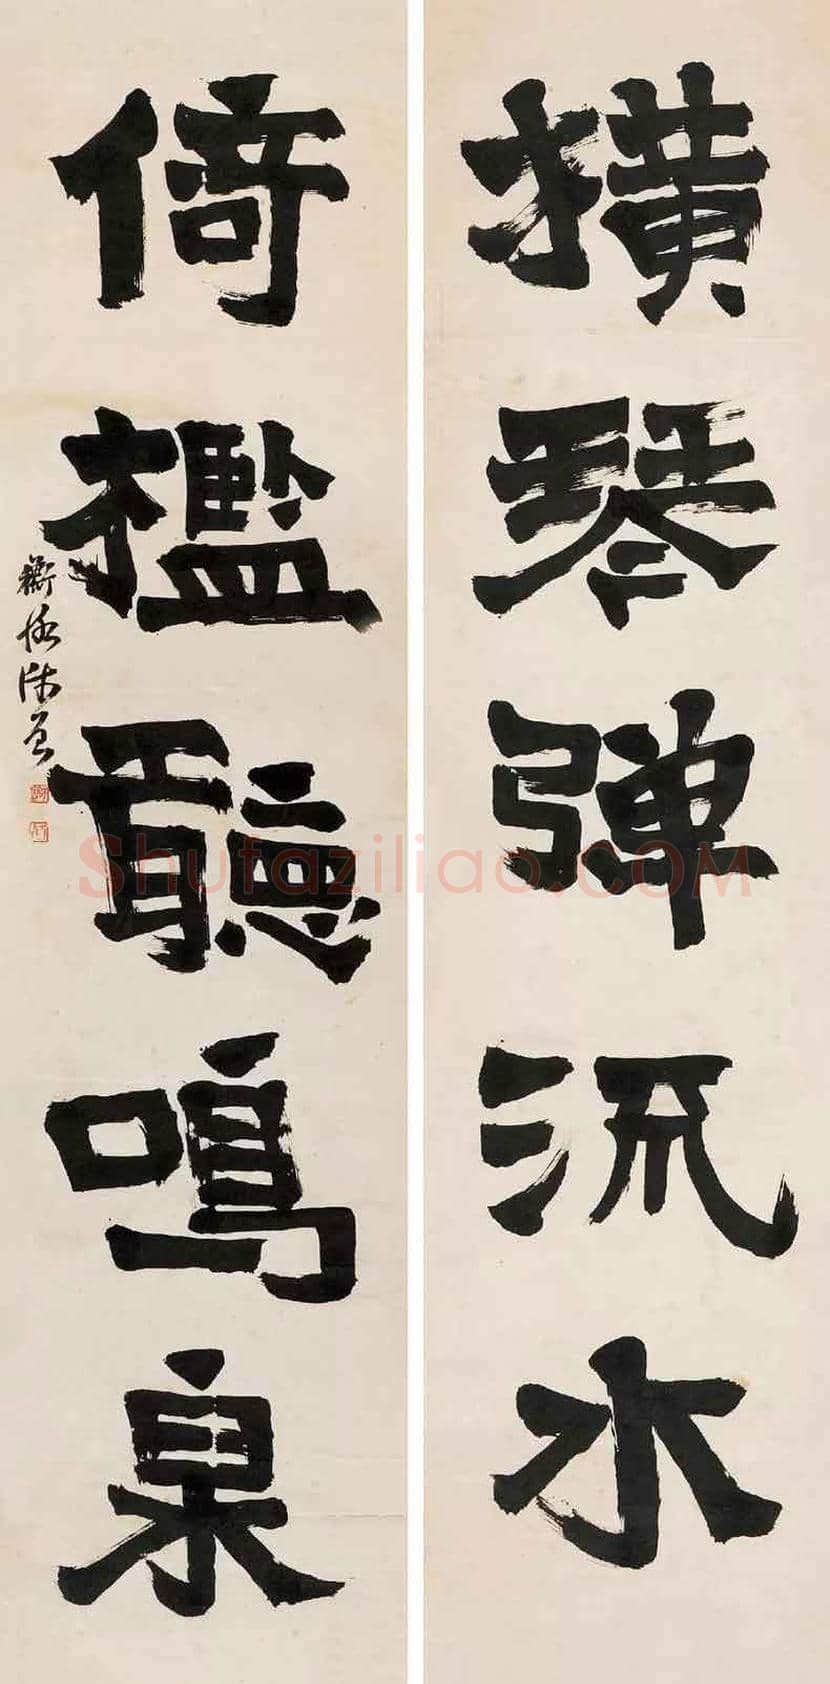 橫琴弹流水
倚檻聽鳴泉
衡恪陳㒸
Shufaziliao.COM